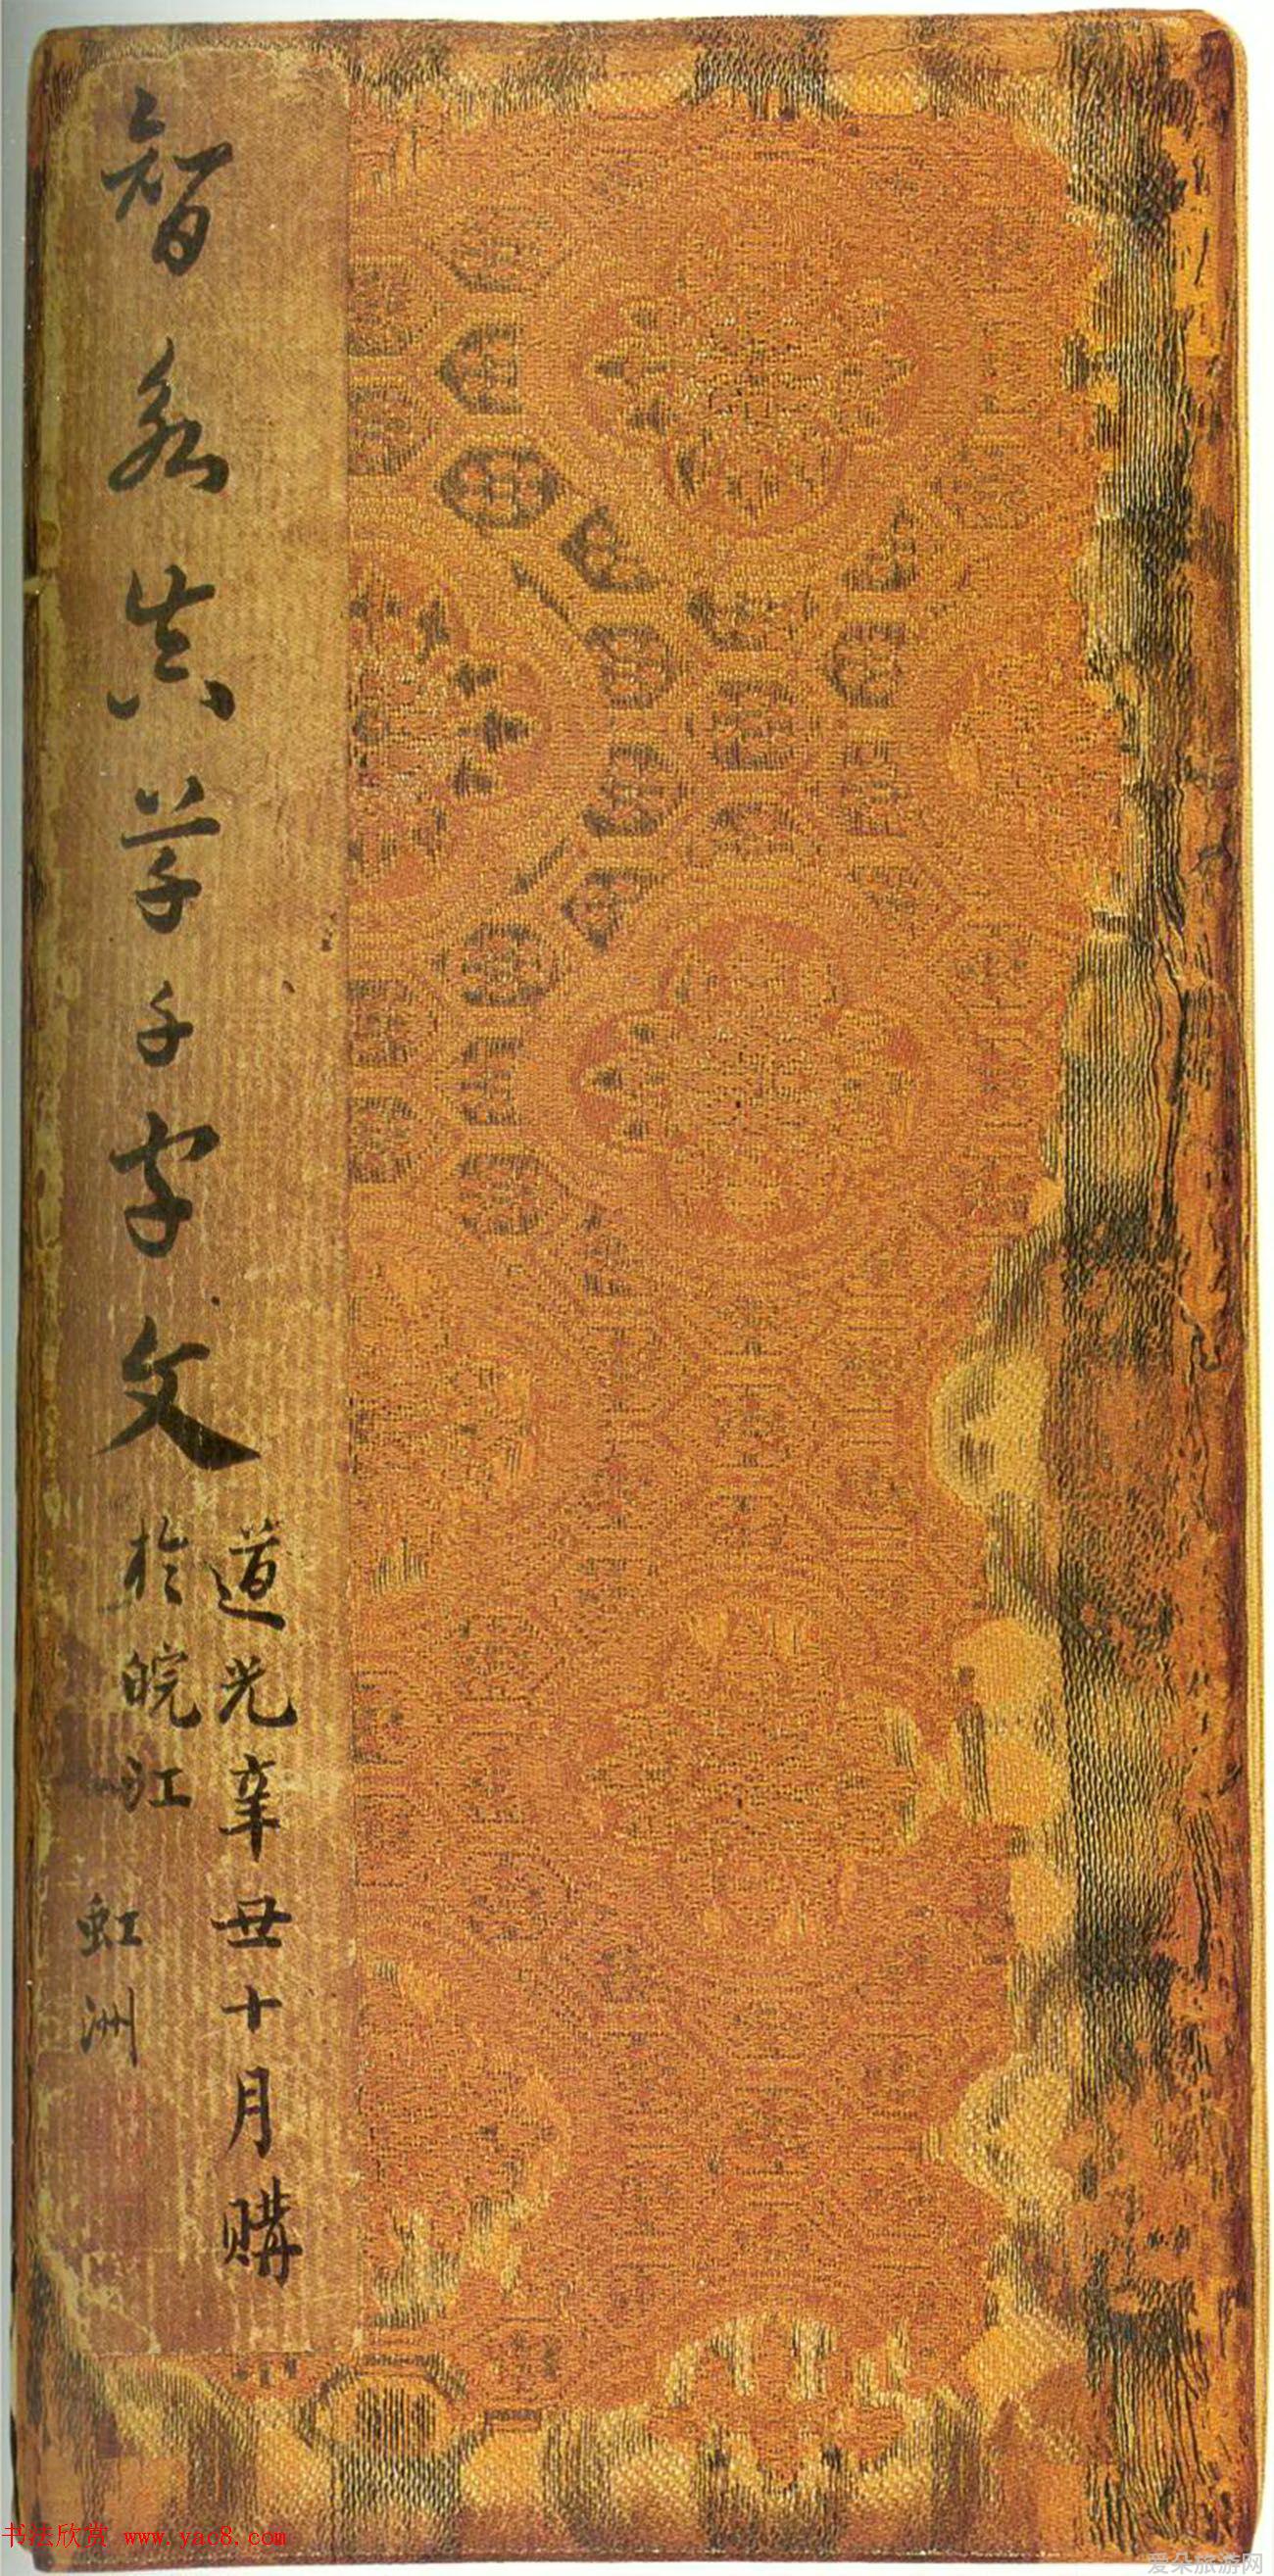 智永真草千字文
道光辛丑十月購
於皖江
虹洲
书法欣赏 www.yac8.com
爱朵旅游网